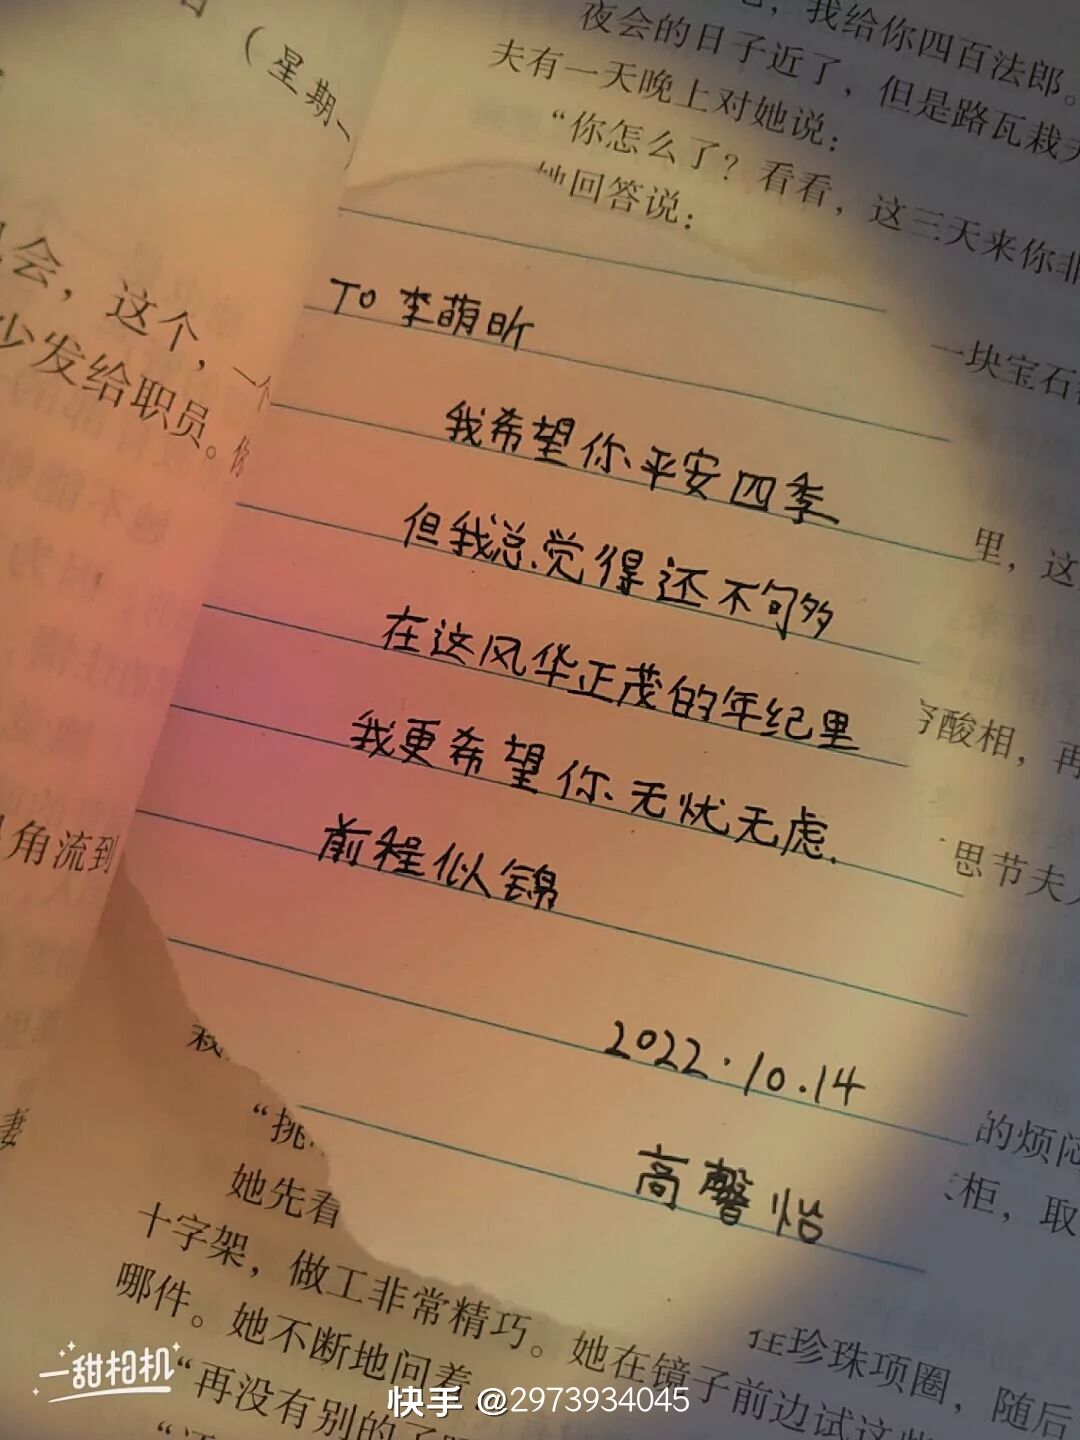 我给你四百法郎。
夜会的日子近了，但是路瓦栽夫
夫有一天晚上对她说：
“你怎么了？看看，这三天来你非
她回答说：
（星期一
会，这个，一个
少发给职员。你
一块宝石
TO 李萌昕
我希望你、平安四季
但我总觉得还不够
在这风华正茂的年纪里
我更希望你、无忧无虑.
前程似锦
2022.10.14
高馨怡
里，这
穷酸相，再
思节夫人
角流到
栽
妻
的烦闷
柜，取
“挑
她先看
十字架，做工非常精巧。她在镜子前边试这些
挂珍珠项圈，随后
哪件。她不断地问着
“再没有别的了
“还
一甜相机
快手 @2973934045